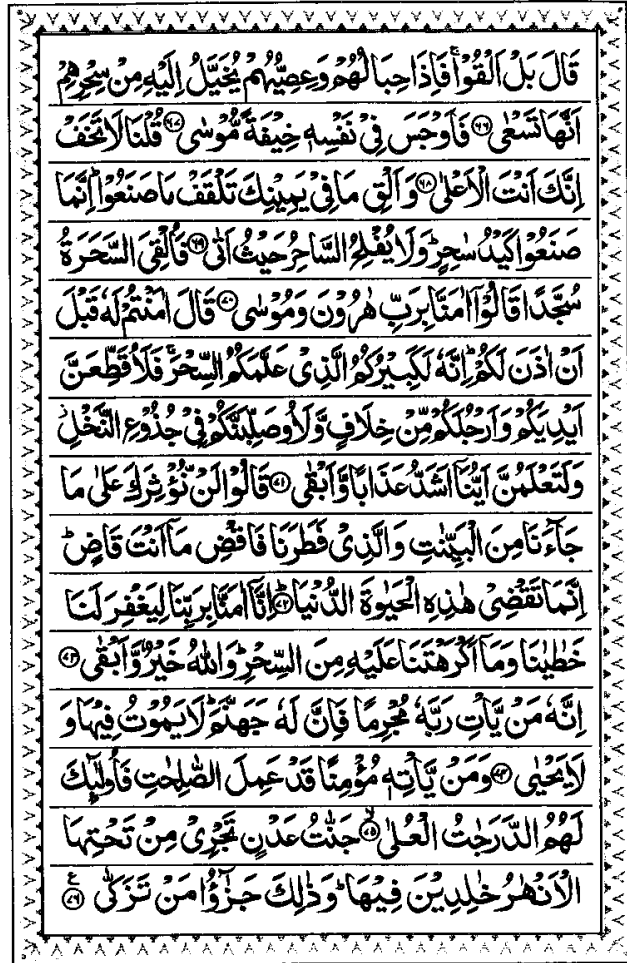 قَالَ بَلْ اَلْقُوْا ۚ فَاِذَا حِبَالُهُمْ وَعِصِيُّهُمْ يُخَيَّلُ اِلَيْهِ مِنْ سِحْرِهِمْ
اَنَّهَا تَسْعٰى ﴿۶۶﴾ فَاَوْجَسَ فِيْ نَفْسِهٖ خِيْفَةً مُّوْسٰى ﴿۶۷﴾ قُلْنَا لَا تَخَفْ
اِنَّكَ اَنْتَ الْاَعْلٰى ﴿۶۸﴾ وَاَلْقِ مَا فِيْ يَمِيْنِكَ تَلْقَفْ مَا صَنَعُوْا ؕ اِنَّمَا
صَنَعُوْا كَيْدُ سٰحِرٍ ؕ وَلَا يُفْلِحُ السَّاحِرُ حَيْثُ اَتٰى ﴿۶۹﴾ فَاُلْقِيَ السَّحَرَةُ
سُجَّدًا قَالُوْۤا اٰمَنَّا بِرَبِّ هٰرُوْنَ وَمُوْسٰى ﴿۷۰﴾ قَالَ اٰمَنْتُمْ لَهٗ قَبْلَ
اَنْ اٰذَنَ لَكُمْ ؕ اِنَّهٗ لَكَبِيْرُكُمُ الَّذِيْ عَلَّمَكُمُ السِّحْرَ ۚ فَلَاُقَطِّعَنَّ
اَيْدِيَكُمْ وَاَرْجُلَكُمْ مِّنْ خِلَافٍ وَّلَاُوصَلِّبَنَّكُمْ فِيْ جُذُوْعِ النَّخْلِ ؗ
وَلَتَعْلَمُنَّ اَيُّنَاۤ اَشَدُّ عَذَابًا وَّاَبْقٰى ﴿۷۱﴾ قَالُوْا لَنْ نُّؤْثِرَكَ عَلٰى مَا
جَآءَنَا مِنَ الْبَيِّنٰتِ وَالَّذِيْ فَطَرَنَا فَاقْضِ مَاۤ اَنْتَ قَاضٍ ؕ
اِنَّمَا تَقْضِيْ هٰذِهِ الْحَيٰوةَ الدُّنْيَا ﴿۷۲﴾ اِنَّاۤ اٰمَنَّا بِرَبِّنَا لِيَغْفِرَ لَنَا
خَطٰيٰنَا وَمَاۤ اَكْرَهْتَنَا عَلَيْهِ مِنَ السِّحْرِ ؕ وَاللّٰهُ خَيْرٌ وَّاَبْقٰى ﴿۷۳﴾
اِنَّهٗ مَنْ يَّاْتِ رَبَّهٗ مُجْرِمًا فَاِنَّ لَهٗ جَهَنَّمَ ؕ لَا يَمُوْتُ فِيْهَا وَ
لَا يَحْيٰى ﴿۷۴﴾ وَمَنْ يَّاْتِهٖ مُؤْمِنًا قَدْ عَمِلَ الصّٰلِحٰتِ فَاُولٰٓئِكَ
لَهُمُ الدَّرَجٰتُ الْعُلٰى ﴿۷۵﴾ۙ جَنّٰتُ عَدْنٍ تَجْرِيْ مِنْ تَحْتِهَا
الْاَنْهٰرُ خٰلِدِيْنَ فِيْهَا ؕ وَذٰلِكَ جَزٰٓؤُا مَنْ تَزَكّٰى ﴿۷۶﴾ ع